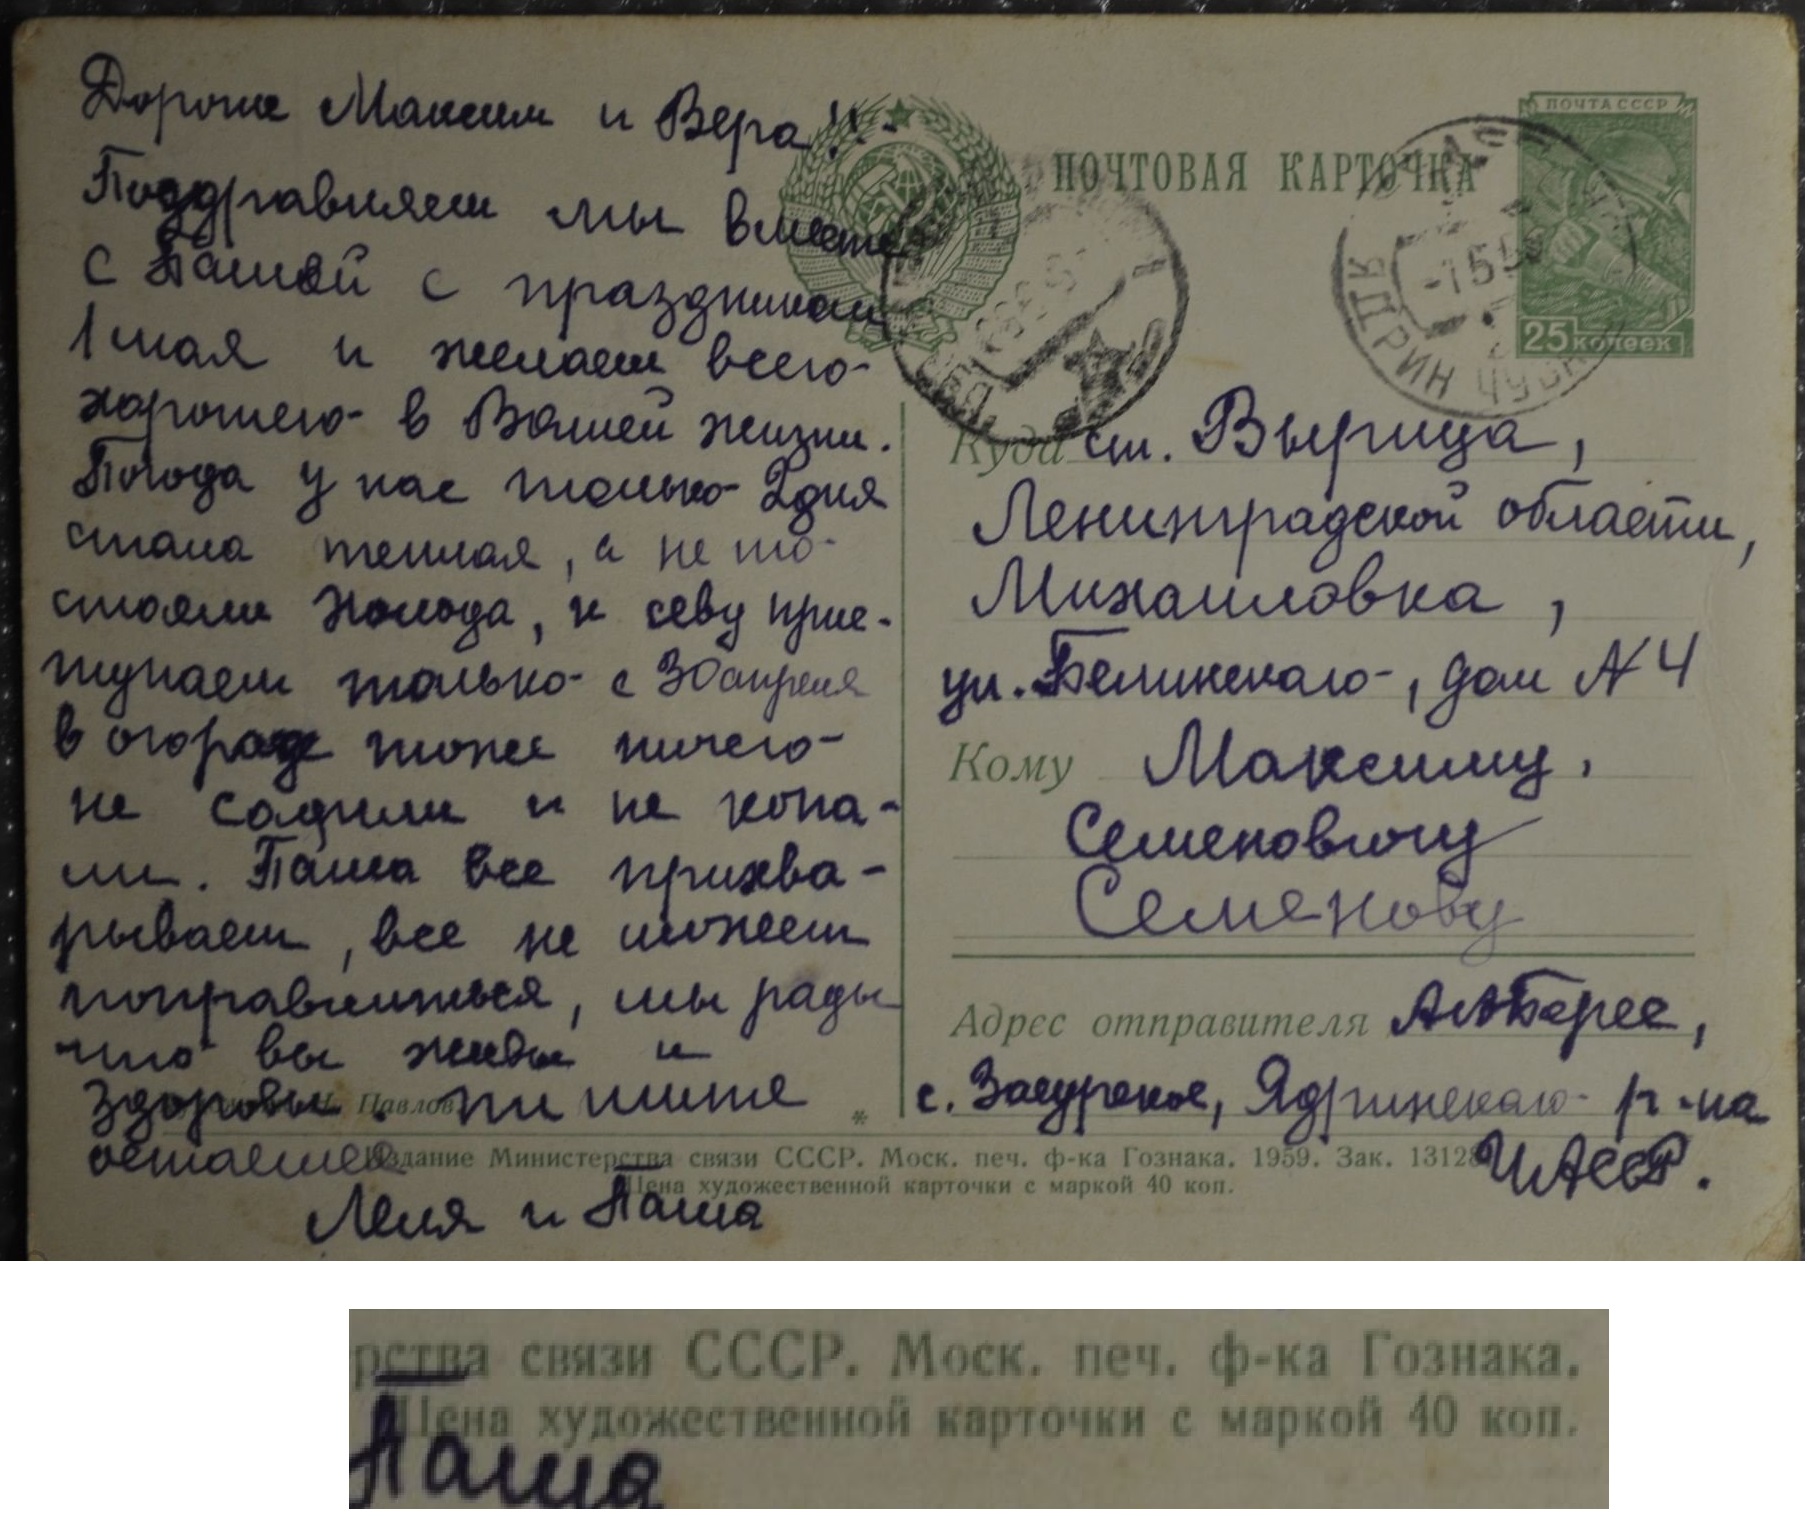 Дорогие Максим и Вера!!
Поздравляем мы вместе
с Пашей с праздником
1 мая и желаем всего
хорошего в Вашей жизни.
Погода у нас только 2 дня
стала теплая, а не то
стояли холода, к севу прис-
тупаем только с 30 апреля
в огороде тоже ничего
не садили и не копа-
ли. Паша все прихва-
рывает, все не может
поправиться, мы рады
что вы живы и
здоровы. пишите
остаемся
Леля и Паша
ПОЧТОВАЯ КАРТОЧКА
ПОЧТА СССР
25 копеек
Куда ст. Вырица,
Ленинградской области,
Михаиловка,
ул. Белинского, дом N 4
Кому Максиму
Семеновичу
Семенову
Адрес отправителя
с. Засурское, Ядринского р-на
ЧАССР.
Павлов
Издание Министерства связи СССР. Моск. печ. ф-ка Гознака. 1959. Зак. 13128
Цена художественной карточки с маркой 40 коп.
рства связи СССР. Моск. печ. ф-ка Гознака.
Цена художественной карточки с маркой 40 коп.
Паша